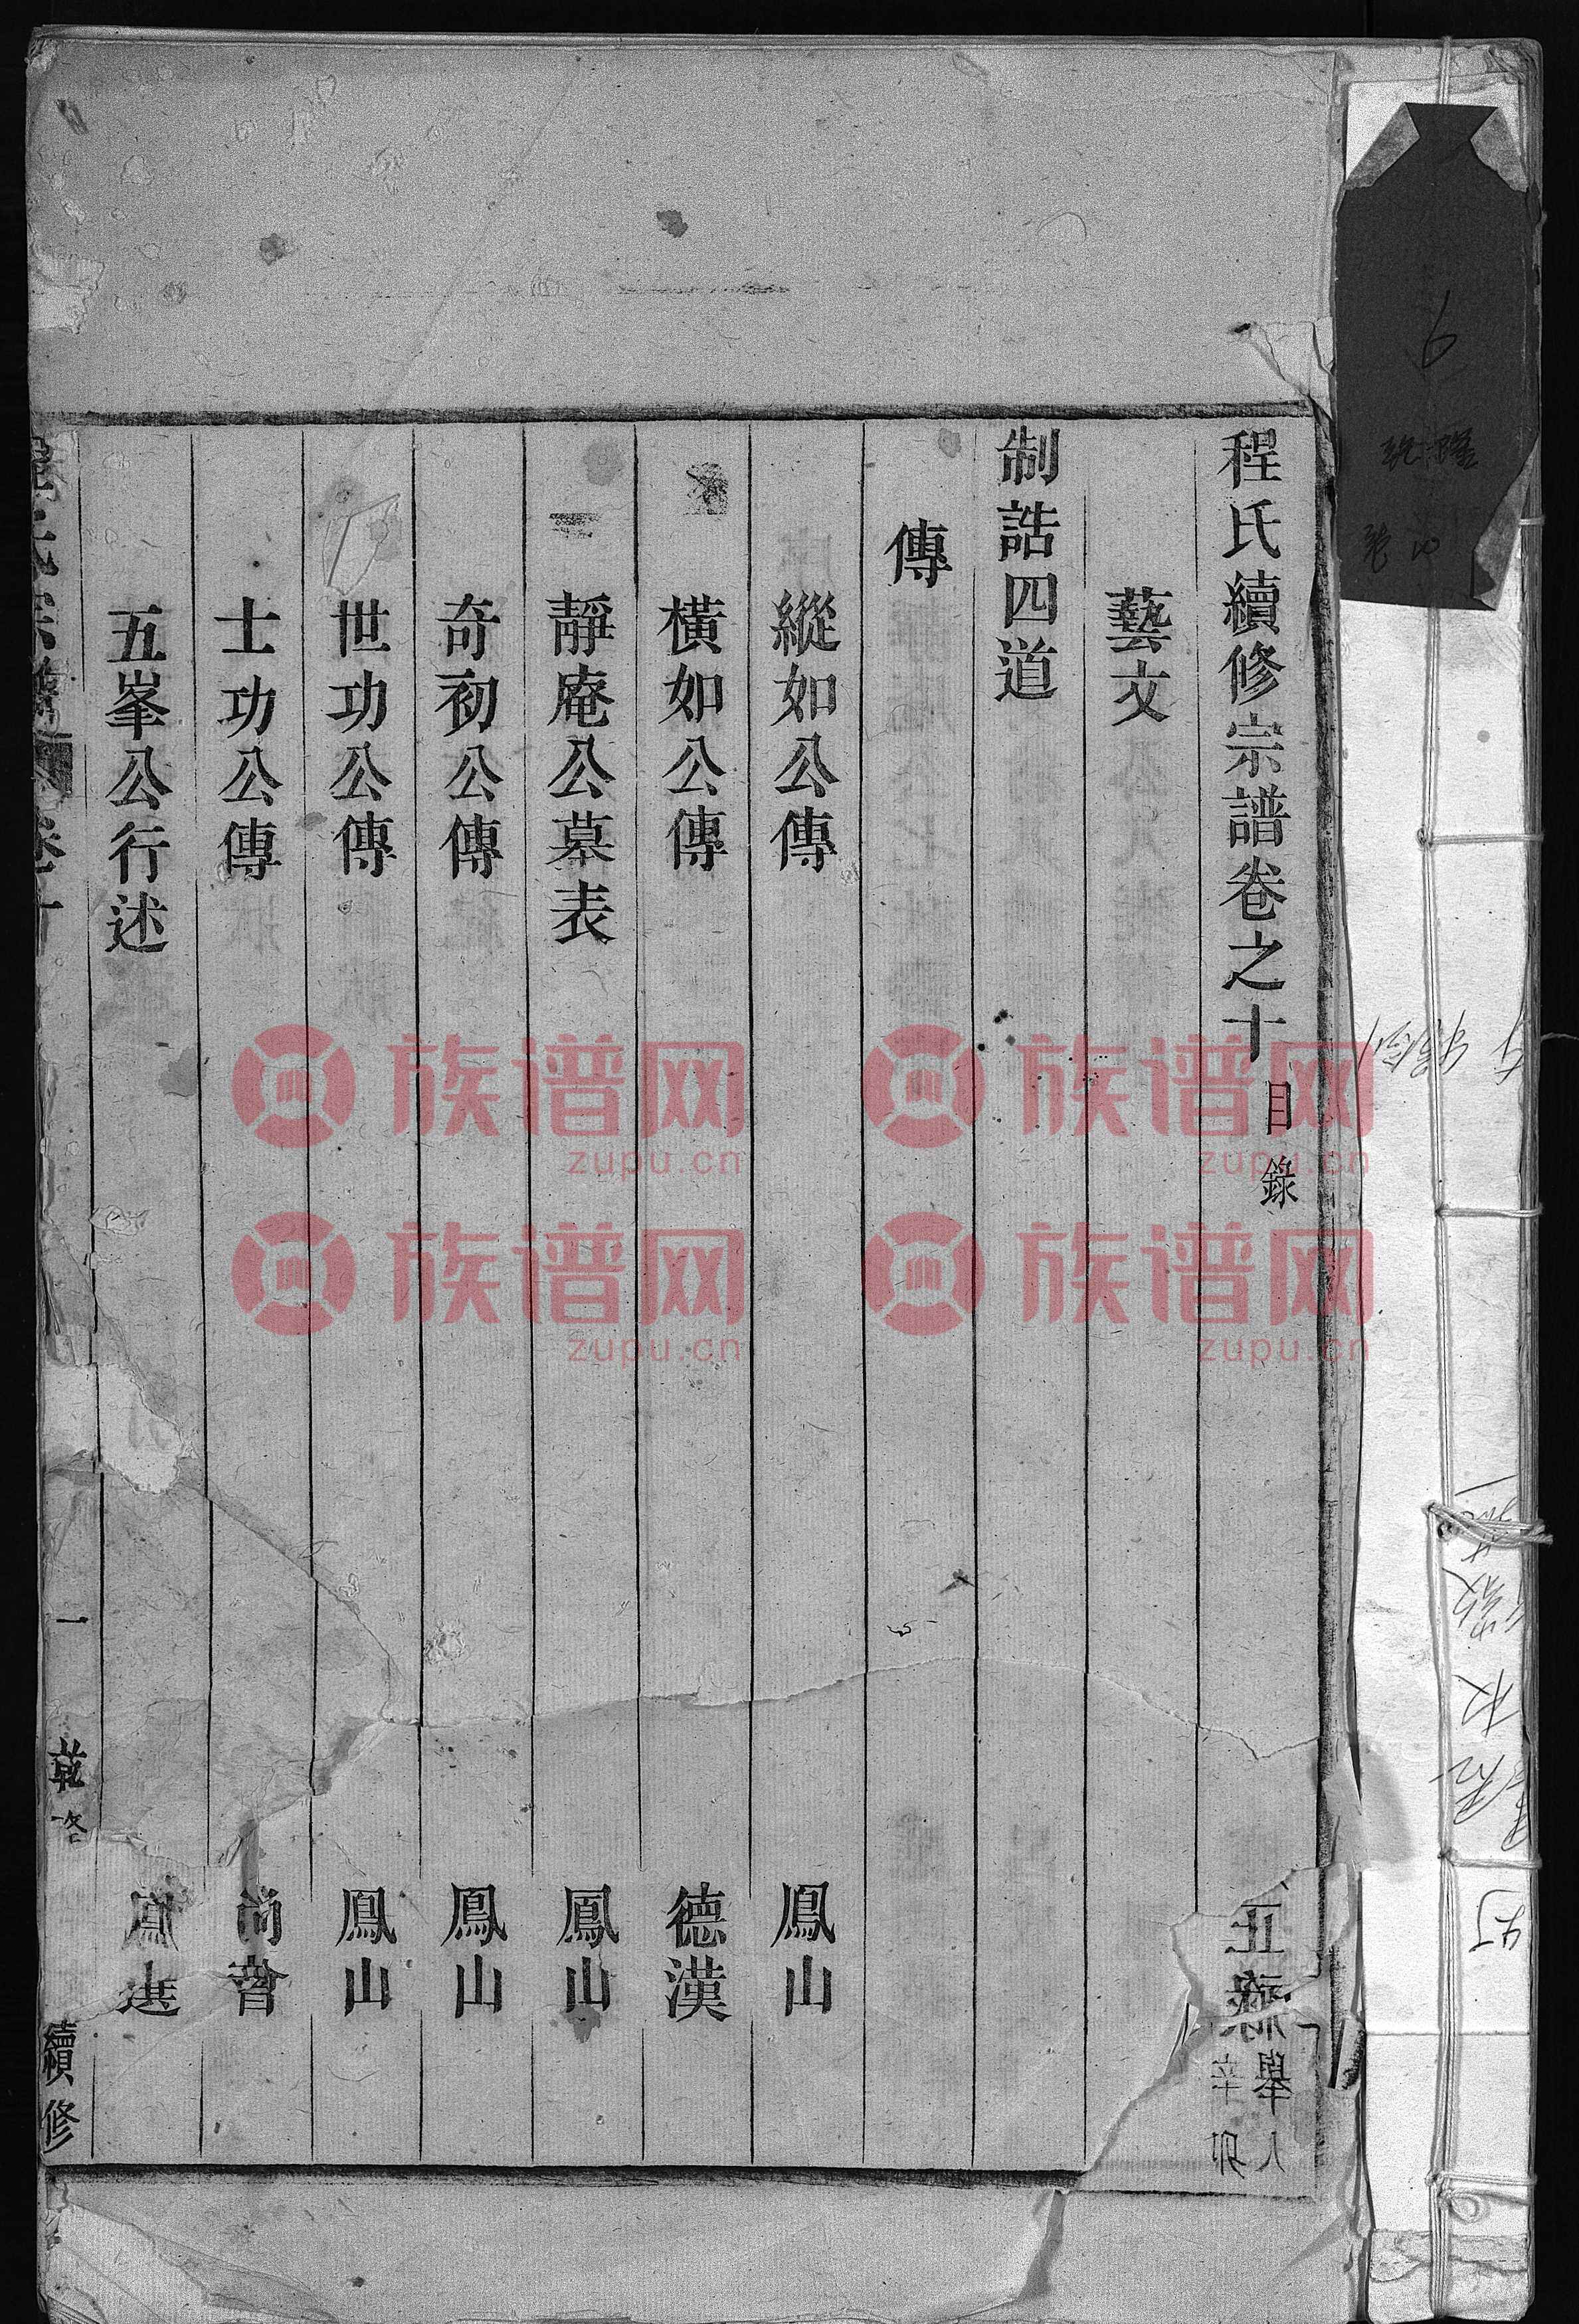 程氏續修宗譜卷之十 目錄
藝文
制誥四道
傳
縱如公傳 鳳山
橫如公傳 德漢
靜庵公墓表 鳳山
奇初公傳 鳳山
世功公傳 鳳山
士功公傳 尚賓
五峯公行述
卷十 一 乾隆 續修
6
乾隆
卷10
族谱网
zupu.cn
族谱网
zupu.cn
族谱网
zupu.cn
族谱网
zupu.cn